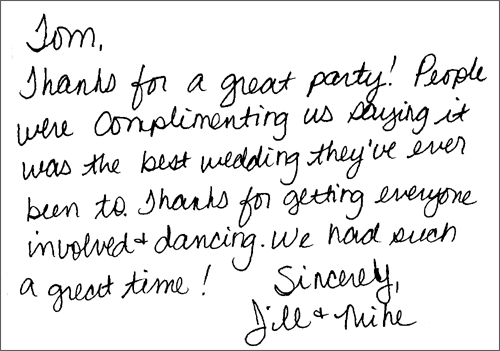 Tom,
Thanks for a great party! People
were complimenting us saying it
was the best wedding they've ever
been to. Thanks for getting everyone
involved + dancing. We had such
a great time!
Sincerely,
Jill + Mike